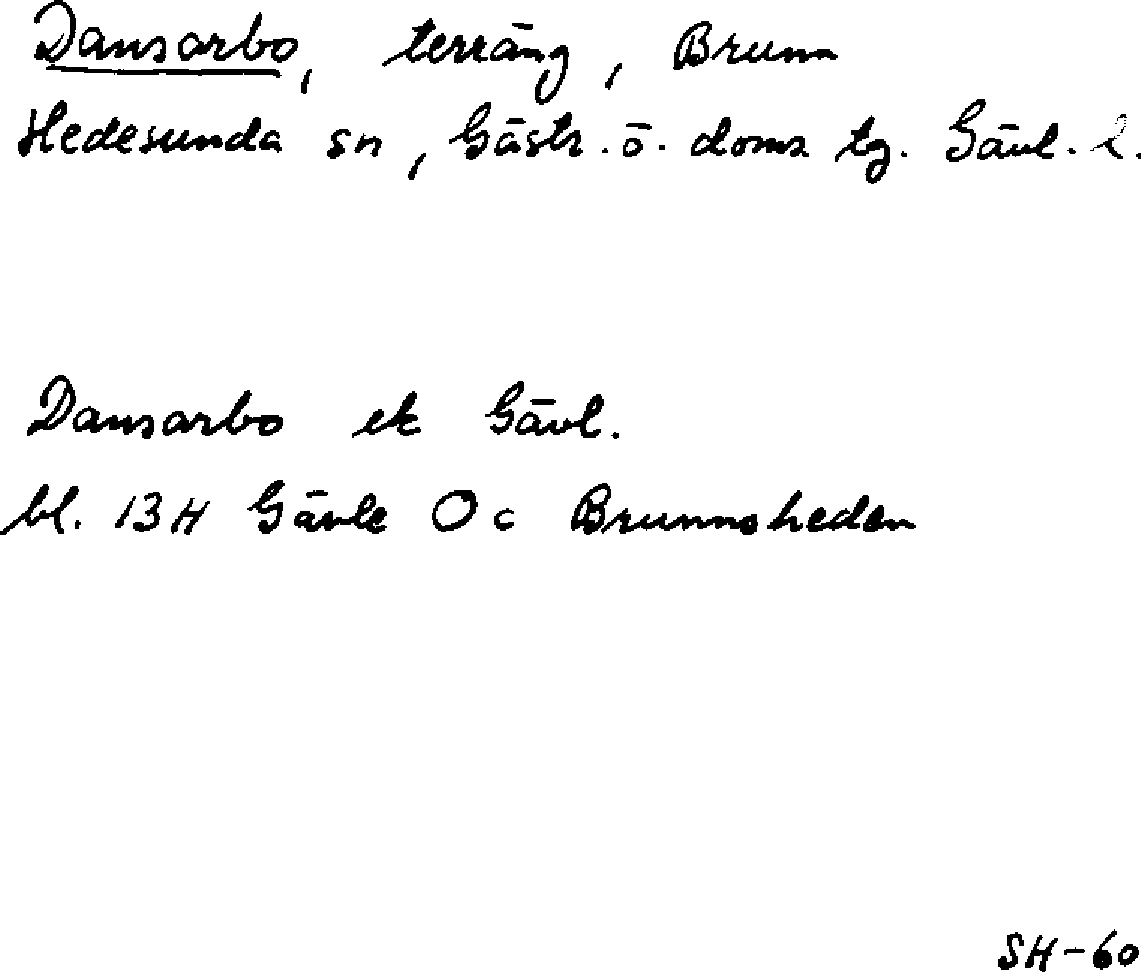 Dansarbo, terräng, Brunn
Hedesunda sn, Gästr. ö. doms tg. Gävl. l.
Dansarbo ek Gävl.
bl. 13H Gävle 0c Brunnsheden
SH-60